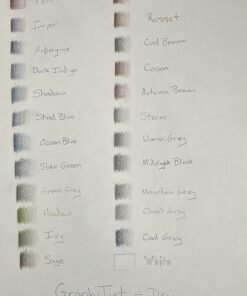 Port
Juniper
Aubergine
Dark Indigo
Shadow
Steel Blue
Ocean Blue
Slate Green
Green Grey
Meadow
Ivy
Sage
Russet
Cool Brown
Cocoa
Autumn Brown
Storm
Warm Grey
Midnight Black
Mountain Grey
Cloud Grey
Cool Grey
White
GraphiTint -